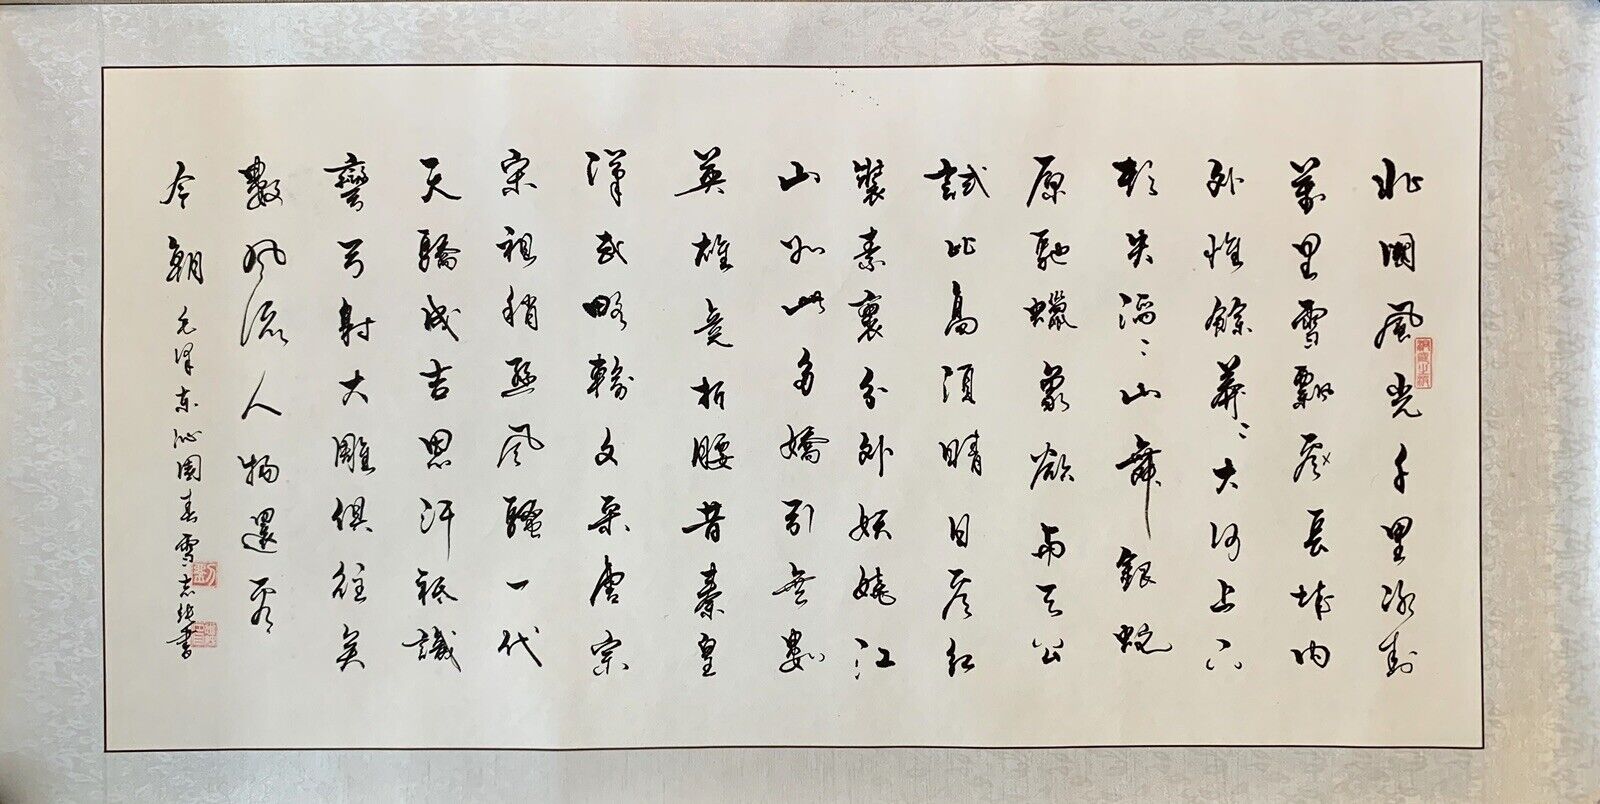 北國風光千里冰封
萬里雪飄望長城內
外惟餘莽〻大河上下
頓失滔〻山舞銀蛇
原馳蠟象欲與天公
試比高須晴日看紅
裝素裹分外妖嬈江
山如此多嬌引無數
英雄竟折腰昔秦皇
漢武略輸文采唐宗
宋祖稍遜風騷一代
天驕成吉思汗祇識
彎弓射大雕俱往矣
數風流人物還看
今朝 毛澤東沁園春雪 志純書